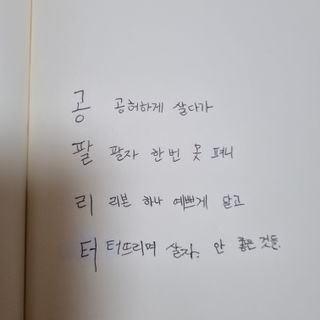 공 공허하게 살다가
팔 팔자 한번 못 펴니
리 리본 하나 예쁘게 달고
터 터뜨리며 살자. 안 좋은 것들.